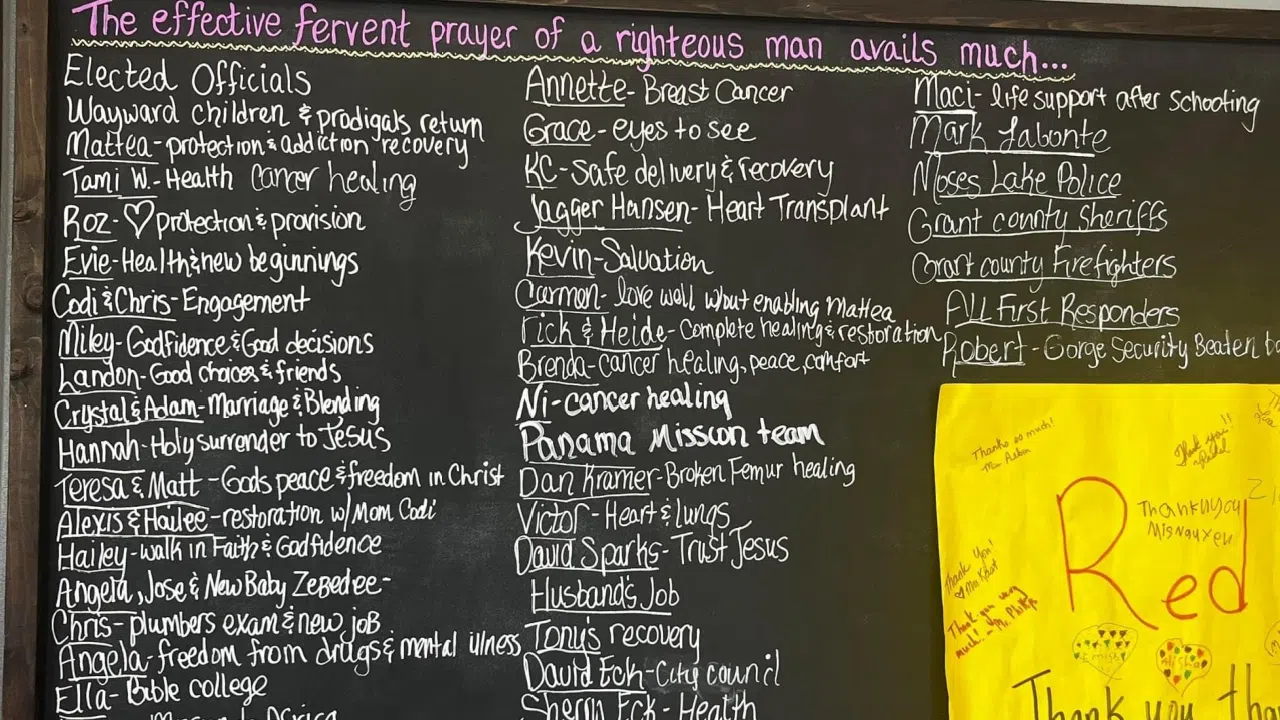 The effective fervent prayer of a righteous man avails much...
Elected Officials
Wayward children & prodigals return
Mattea - protection & addiction recovery
Tami W. - Health cancer healing
Roz - ♡ protection & provision
Evie - Health & new beginnings
Codi & Chris - Engagement
Miley - Godfidence & Good decisions
Landon - Good choices & friends
Crystal & Adam - Marriage & Blending
Hannah - Holy surrender to Jesus
Teresa & Matt - Gods peace & freedom in Christ
Alexis & Hailee - restoration w/ Mom Codi
Hailey - walk in Faith & Godfidence
Angela, Jose & New Baby Zebedee -
Chris - plumbers exam & new job
Angela - freedom from drugs & mental illness
Ella - Bible college
Annette - Breast Cancer
Grace - eyes to see
KC - Safe delivery & recovery
Jagger Hansen - Heart Transplant
Kevin - Salvation
Carmon - love well w/out enabling Mattea
Rick & Heide - Complete healing & restoration
Brenda - cancer healing, peace, comfort
Ni - cancer healing
Panama Mission team
Dan Kramer - Broken Femur healing
Victor - Heart & lungs
David Sparks - Trust Jesus
Husband's Job
Tony's recovery
David Eck - City council
Sherry Eck - Health
Maci - life support after Schooting
Mark Labonte
Moses Lake Police
Grant county Sheriffs
Grant county Firefighters
All First Responders
Robert - Gorge Security Beaten
Thanks so much!
Thank you!!
Thank you
Red
Thank you!
Thank you very
much!
Thank you